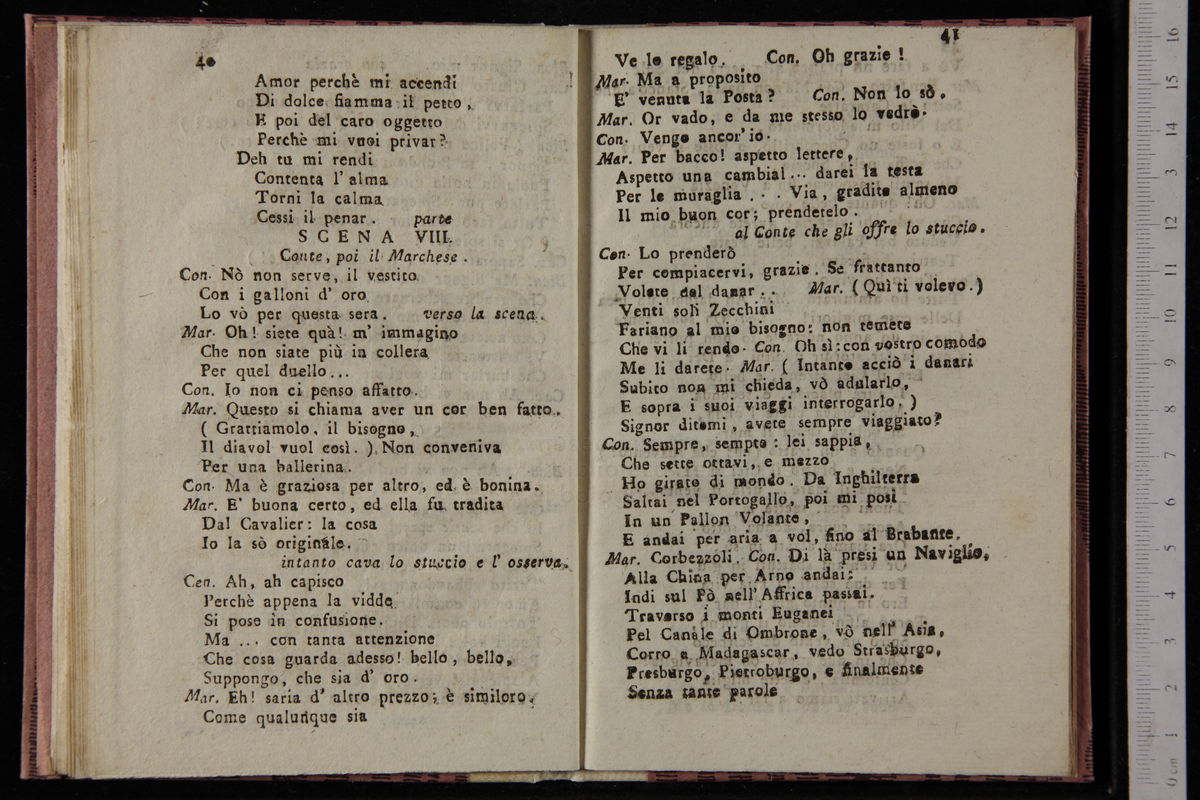 40
Amor perchè mi accendi
Di dolce fiamma il petto,
E poi del caro oggetto
Perchè mi vuoi privar?
Deh tu mi rendi
Contenta l' alma
Torni la calma
Cessi il penar. parte
SCENA VIII.
Conte, poi il Marchese.
Con. Nò non serve, il vestito
Con i galloni d' oro
Lo vò per questa sera. verso la scena.
Mar. Oh! siete quà! m' immagino
Che non siate più in collera
Per quel duello...
Con. Io non ci penso affatto.
Mar. Questo si chiama aver un cor ben fatto.
( Grattiamolo, il bisogno,
Il diavol vuol così. ) Non conveniva
Per una ballerina.
Con. Ma è graziosa per altro, ed è bonina.
Mar. E' buona certo, ed ella fu tradita
Dal Cavalier: la cosa
Io la sò originale.
intanto cava lo stuccio e l' osserva.
Con. Ah, ah capisco
Perchè appena la vidde
Si pose in confusione.
Ma ... con tanta attenzione
Che cosa guarda adesso! bello, bello,
Suppongo, che sia d' oro.
Mar. Eh! saria d' altro prezzo; è similoro.
Come qualunque sia
41
Ve lo regalo. Con. Oh grazie!
Mar. Ma a proposito
E' venuta la Posta? Con. Non lo sò.
Mar. Or vado, e da me stesso lo vedrò.
Con. Vengo ancor' io.
Mar. Per bacco! aspetto lettere,
Aspetto una cambial... darei la testa
Per le muraglia ... Via, gradite almeno
Il mio buon cor; prendetelo.
al Conte che gli offre lo stuccio.
Con. Lo prenderò
Per compiacervi, grazie. Se frattanto
Volete del danar.. Mar. (Quì ti volevo.)
Venti soli Zecchini
Fariano al mio bisogno: non temete
Che vi li rendo. Con. Oh sì: con vostro comodo
Me li darete. Mar. ( Intanto acciò i danari
Subito non mi chieda, vò adularlo,
E sopra i suoi viaggi interrogarlo. )
Signor ditemi, avete sempre viaggiato?
Con. Sempre, sempte: lei sappia,
Che sette ottavi, e mezzo
Ho girato di mondo. Da Inghilterra
Saltai nel Portogallo, poi mi posi
In un Pallon Volante,
E andai per aria a vol, fino al Brabante.
Mar. Corbezzoli. Con. Di là presi un Naviglio,
Alla China per Arno andai:
Indi sul Pò nell' Affrica passai.
Traverso i monti Euganei
Pel Canale di Ombrone, vò nell' Asia,
Corro a Madagascar, vedo Strasburgo,
Presburgo, Pietroburgo, e finalmente
Senza tante parole
16
15
14
13
12
11
10
9
8
7
6
5
4
3
2
1
0 cm